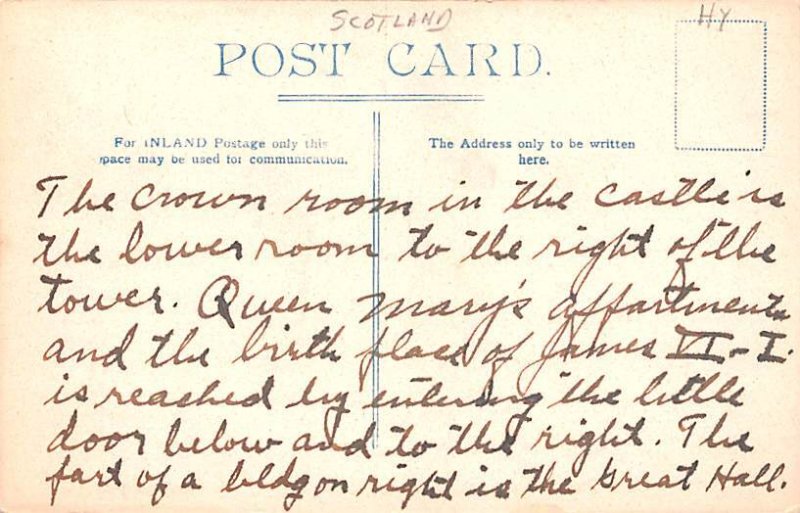 SCOTLAND
HY
POST CARD.
For INLAND Postage only this
space may be used for communication.
The Address only to be written
here.
The crown room in the castle is
the lower room to the right of the
tower. Queen Mary's appartments
and the birth place of James VI-I.
is reached by entering the little
door below and to the right. The
part of a bldg on right is the Great Hall.